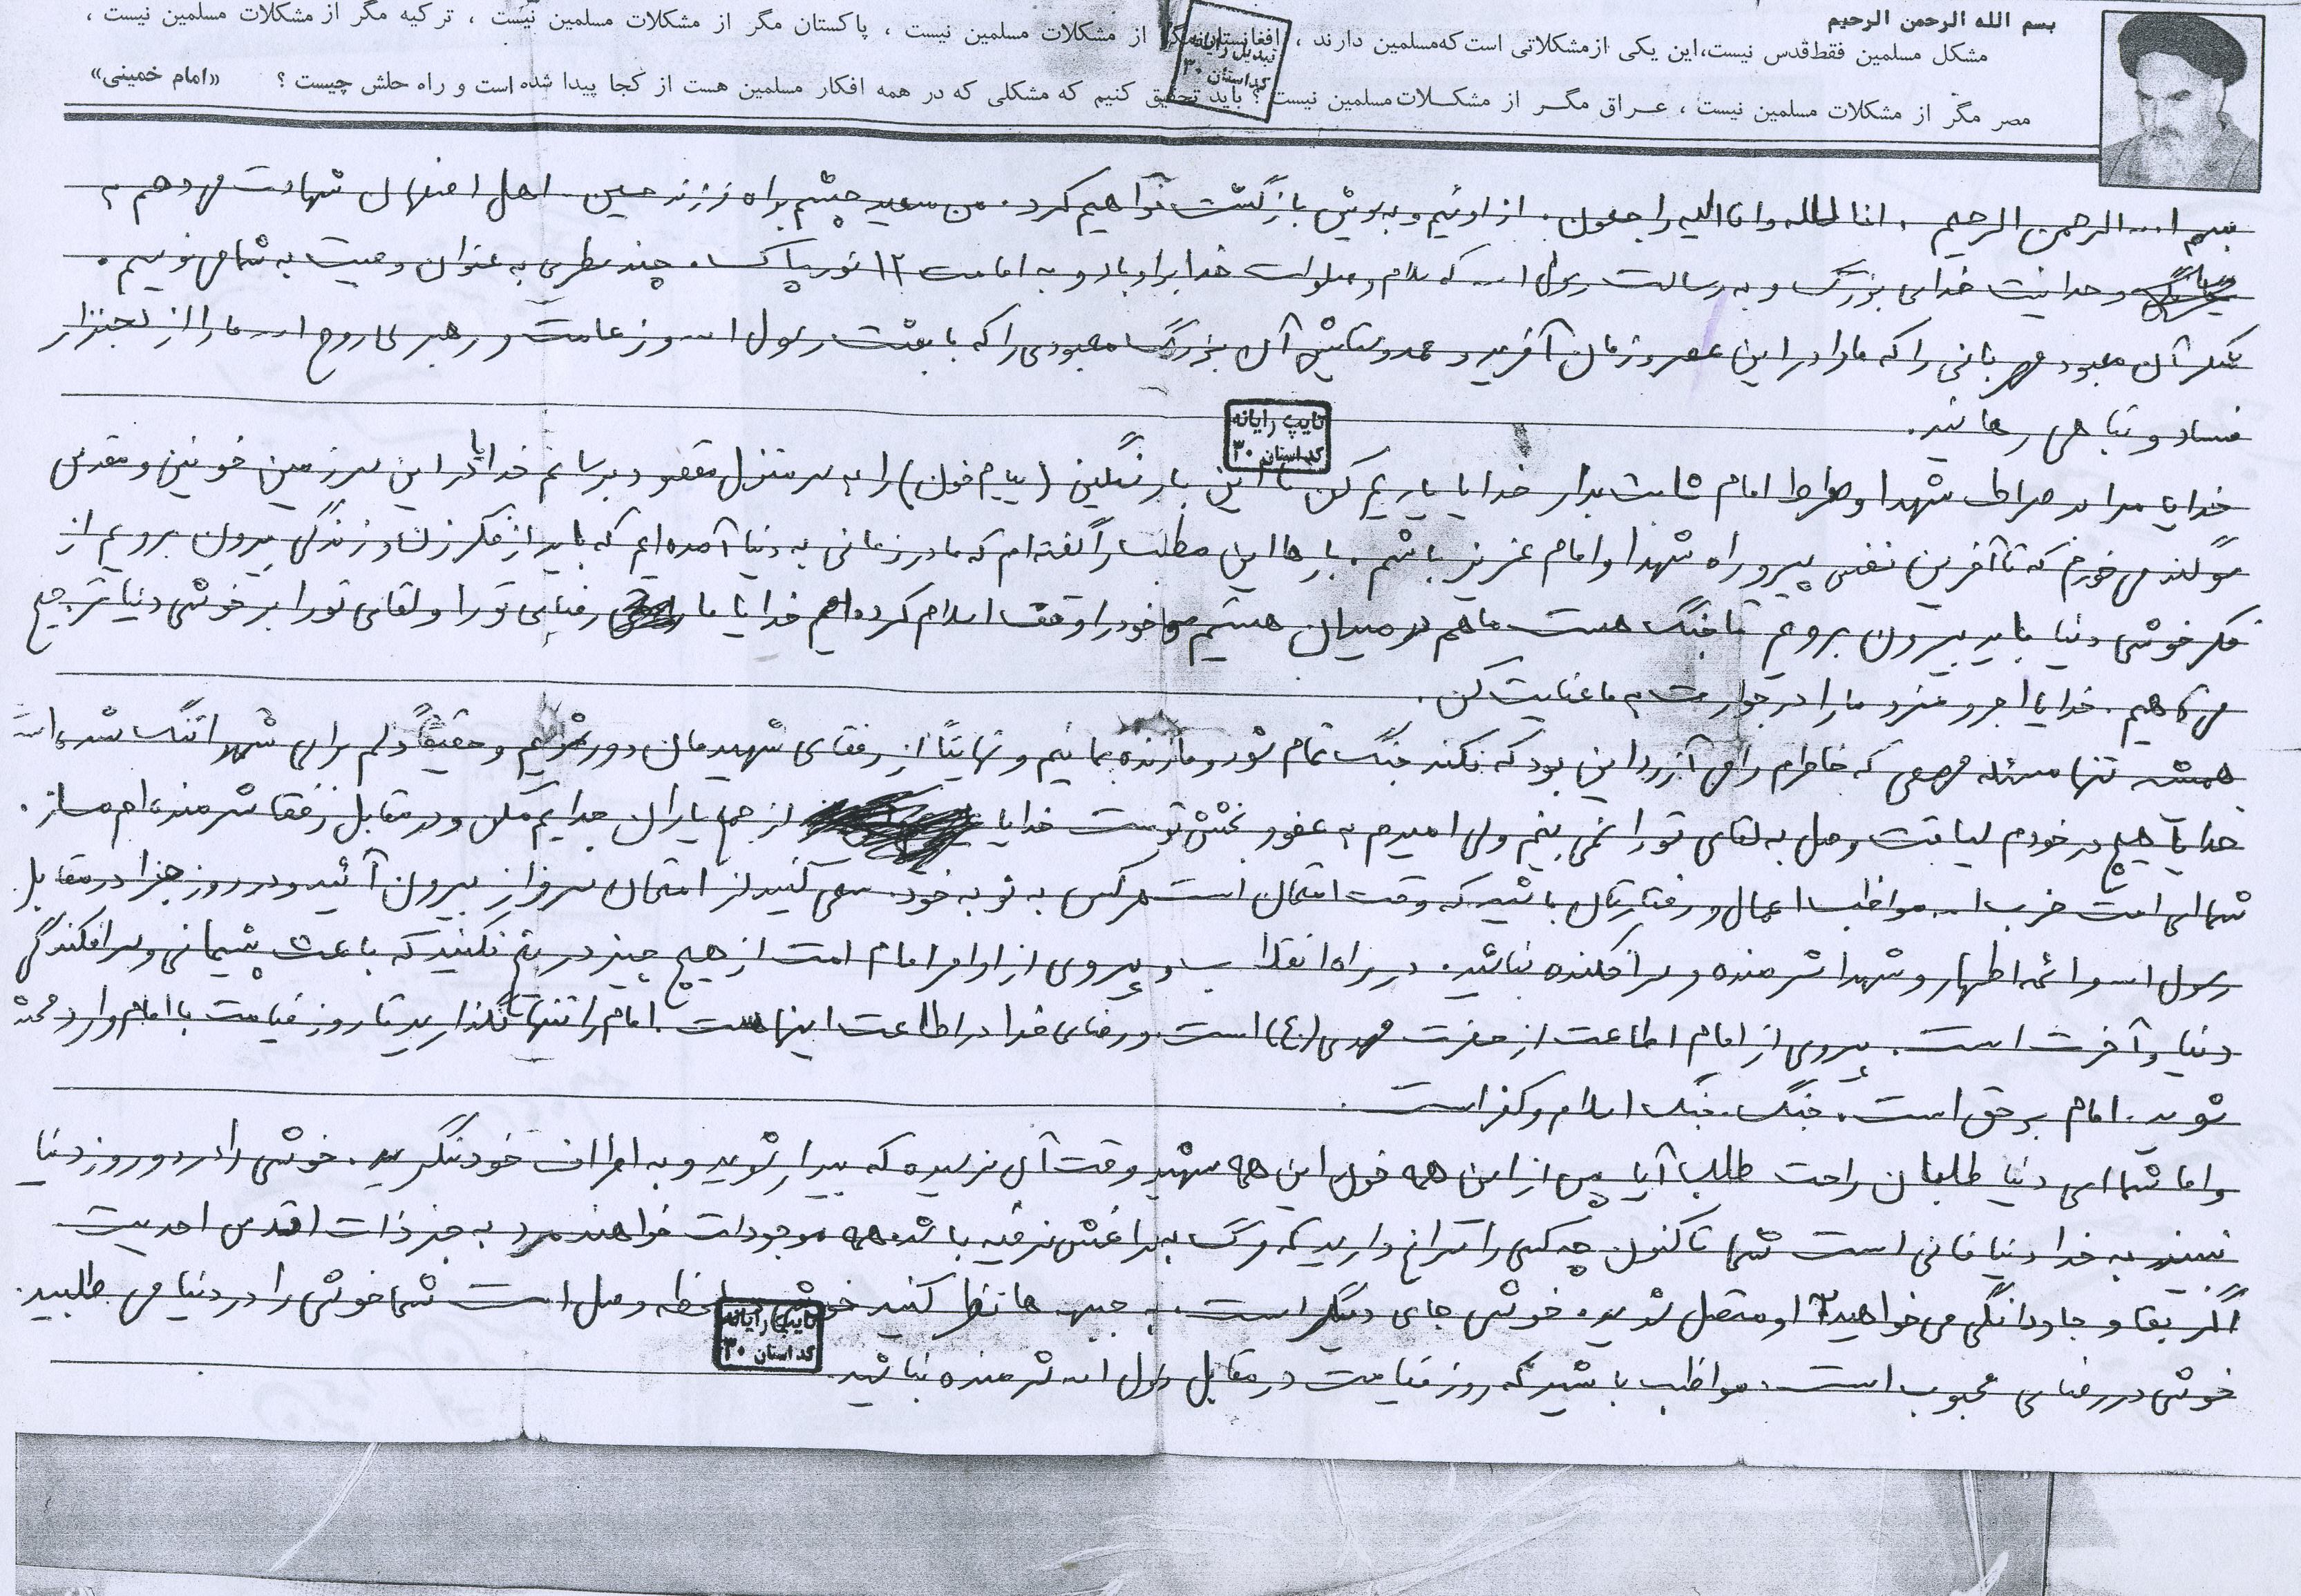 بسم الله الرحمن الرحیم
مشکل مسلمین فقط قدس نیست، این یکی از مشکلاتی است که مسلمین دارند ، افغانستان مگر از مشکلات مسلمین نیست ، پاکستان مگر از مشکلات مسلمین نیست ، ترکیه مگر از مشکلات مسلمین نیست ،
مصر مگر از مشکلات مسلمین نیست ، عراق مگر از مشکلات مسلمین نیست ؟ باید تحقیق کنیم که مشکلی که در همه افکار مسلمین هست از کجا پیدا شده است و راه حلش چیست ؟ «امام خمینی»
تبدیل رایانه
کد استان ۳۰
بسم ا... الرحمن الرحیم . انا لله و انا الیه راجعون. از اوئیم و به سویش بازگشت خواهیم کرد. من سعید چشم براه فرزند حسین اهل اصفهان شهادت میدهم به
وحدانیت خدای بزرگ و به رسالت رسول ا... که سلام و صلوات خدا بر او باد و به امامت ۱۲ نور پاک. چند سطری به عنوان وصیت به شما می نویسم.
شکر آن معبود مهربانی را که ما را در این عصر و زمان آفرید و حمد و ستایش آن بزرگ معبودی را که با بعثت رسول ا... و زعامت و رهبری روح ا... ما را از لجنزار
فساد و تباهی رهانید.
تایپ رایانه
کد استان ۳۰
خدایا مرا بر صراط شهدا و صراط امام ثابت بدار خدایا یاریم کن تا این بار سنگین (پیام خون) را به سر منزل مقصود برسانم خدایا در این سرزمین خونین و مقدس
سوگند می خورم که تا آخرین نفس پیرو راه شهدا و امام عزیز باشم. بارها این مطلب را گفته ام که ما در زمانی به دنیا آمده ایم که باید از فکر زن و زندگی بیرون برویم از
فکر خوشی دنیا باید بیرون برویم تا جنگ هست ما هم در میدان هستیم خود را وقف اسلام کرده ایم خدایا ما رضای تو را و لقای تو را بر خوشی دنیا ترجیح
می دهیم. خدایا اجر و مزد ما را در جوارت به ما عنایت کن.
همیشه تنها مسئله مهمی که خاطرم را می آزرد این بود که نکند جنگ تمام شود و ما زنده بمانیم و نهایتاً از رفقای شهیدمان دور شویم و حقیقتاً دلم برای شهدا تنگ شده است
خدایا هیچ در خودم لیاقت وصل به لقای تو را نمی بینم ولی امیدم به عفو و بخشش توست خدایا از جمع یاران جدایم مکن و در مقابل رفقا شرمنده ام مساز.
شما ای امت حزب ا... مواظب اعمال و رفتارتان باشید که وقت امتحان است هرکس به نوبه خود. سعی کنید از امتحان سرفراز بیرون آئید و در روز جزا در مقابل
رسول ا... و ائمه اطهار و شهدا شرمنده و سرافکنده نباشید. در راه انقلاب و پیروی از اوامر امام امت از هیچ چیز دریغ نکنید که باعث پشیمانی و سرافکندگی
دنیا و آخرت است. پیروی از امام اطاعت از حضرت مهدی (عج) است و رضای خدا در اطاعت اینهاست. امام را تنها نگذارید تا روز قیامت با امام وارد محشر
شوید. امام بر حق است. جنگ، جنگ اسلام و کفر است.
و اما شما ای دنیا طلبان راحت طلب آیا پس از این همه خون این همه شهید وقت آن نرسیده که بیدار شوید و به اطراف خود بنگرید. خوشی را در دو روز دنیا
نبینید به خدا دنیا فانی است شما تاکنون چه کسی را سراغ دارید که مرگ به سراغش نرفته باشد همه موجودات خواهند مرد به جز ذات اقدس احدیت
اگر بقا و جاودانگی می خواهید به او متصل شوید. خوشی جای دیگر است. به جبهه ها نظر کنید خوشی لحظه وصل است شما خوشی را در دنیا می طلبید.
خوشی در رضای محبوب است. مواظب باشید که روز قیامت در مقابل رسول ا... شرمنده نباشید.
تایپ رایانه
کد استان ۳۰